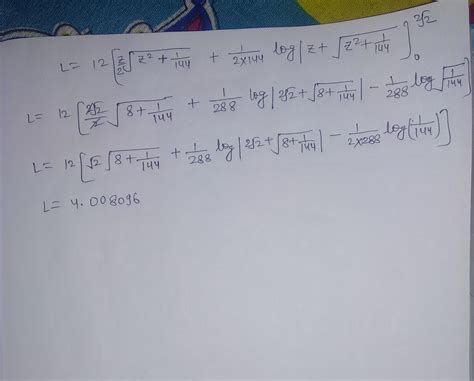 L= 12 [z/2 √(z²+1/144) + 1/(2×144) log|z+√(z²+1/144)|]₀^(2√2)
L= 12 [2√2/2 √(8+1/144) + 1/288 log|2√2+√(8+1/144)| - 1/288 log√(1/144)]
L= 12 [√2 √(8+1/144) + 1/288 log|2√2+√(8+1/144)| - 1/(2×288) log(1/144)]
L= 4.008096